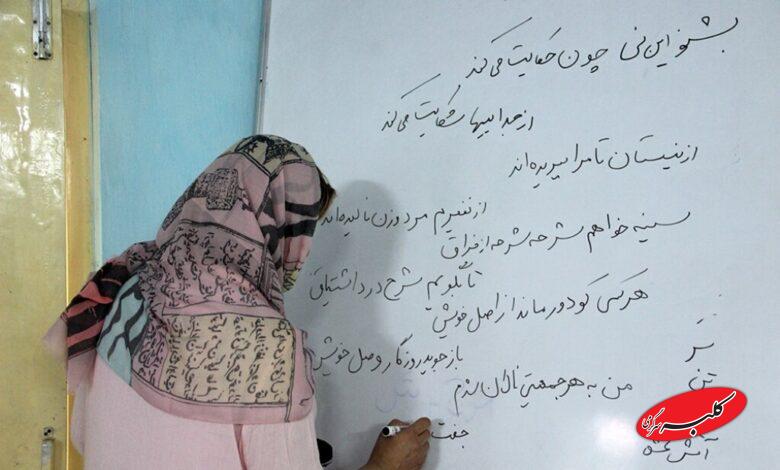 بشنو این نی چون حکایت می‌کند
از جداییها شکایت می‌کند
از نیستان تا مرا ببریده‌اند
از نفیرم مرد و زن نالیده‌اند
سینه خواهم شرحه شرحه از فراق
تا بگویم شرح درد اشتیاق
هر کسی کو دور ماند از اصل خویش
باز جوید روزگار وصل خویش
من به هر جمعیتی نالان شدم
جفت
سر
تن
آتش
کلبه سرگرمی